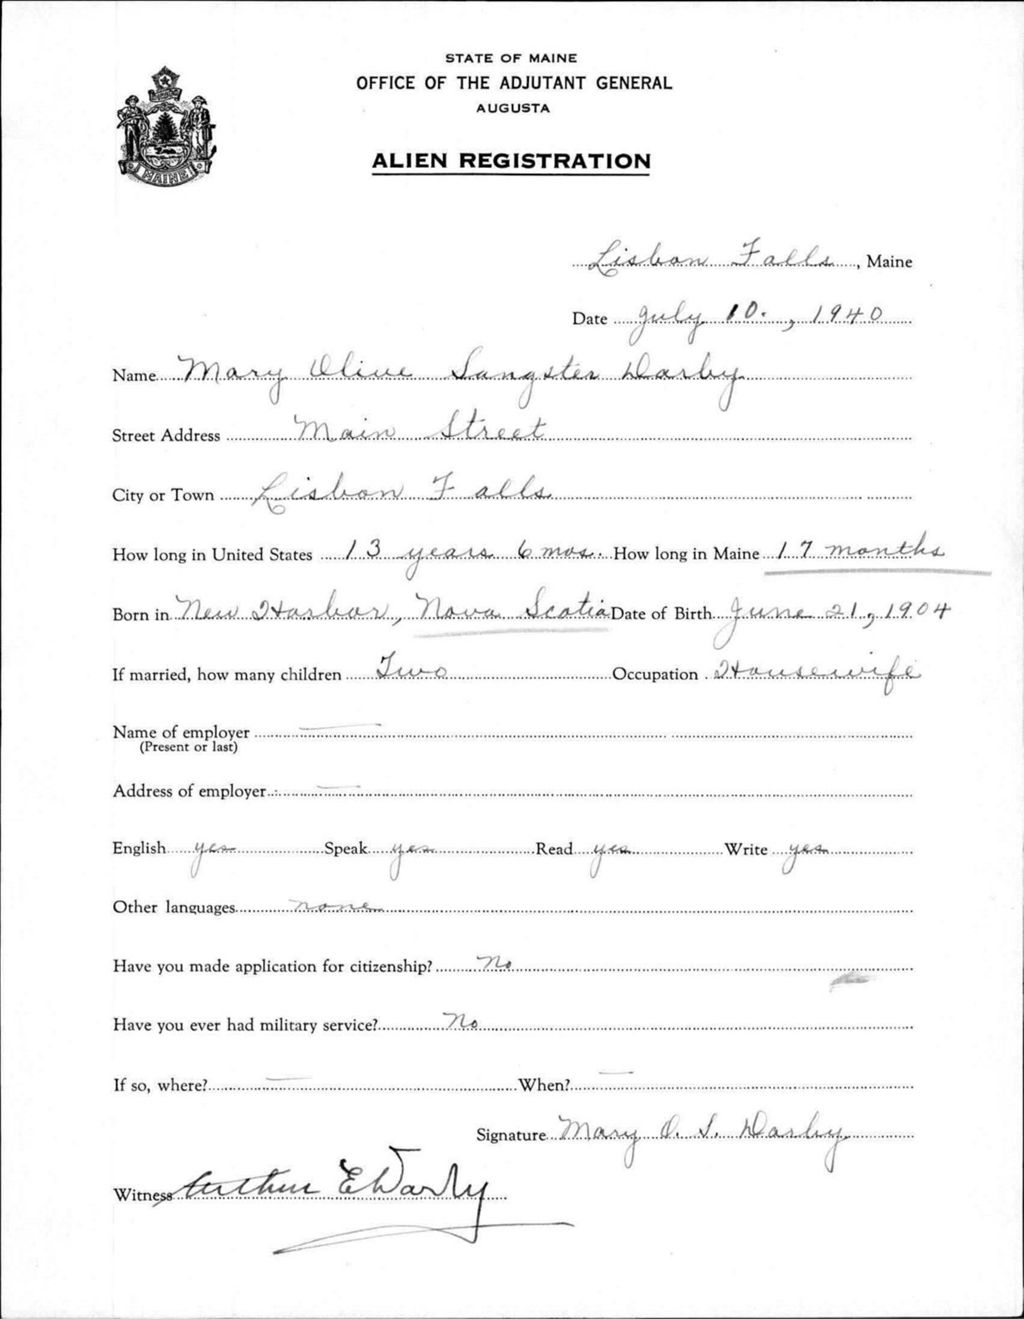 STATE OF MAINE
OFFICE OF THE ADJUTANT GENERAL
AUGUSTA
ALIEN REGISTRATION
MAINE
Lisbon Falls, Maine
Date July 10., 1940
Name Mary Olive Sangster Darby
Street Address Main Street
City or Town Lisbon Falls
How long in United States 13 years 6 mos. How long in Maine 17 months
Born in New Harbor, Nova Scotia Date of Birth June 21, 1904
If married, how many children Two Occupation Housewife
Name of employer —
(Present or last)
Address of employer —
English yes Speak yes Read yes Write yes
Other languages none
Have you made application for citizenship? No
Have you ever had military service? No
If so, where? — When? —
Signature Mary O. S. Darby
Witness Arthur E Darby